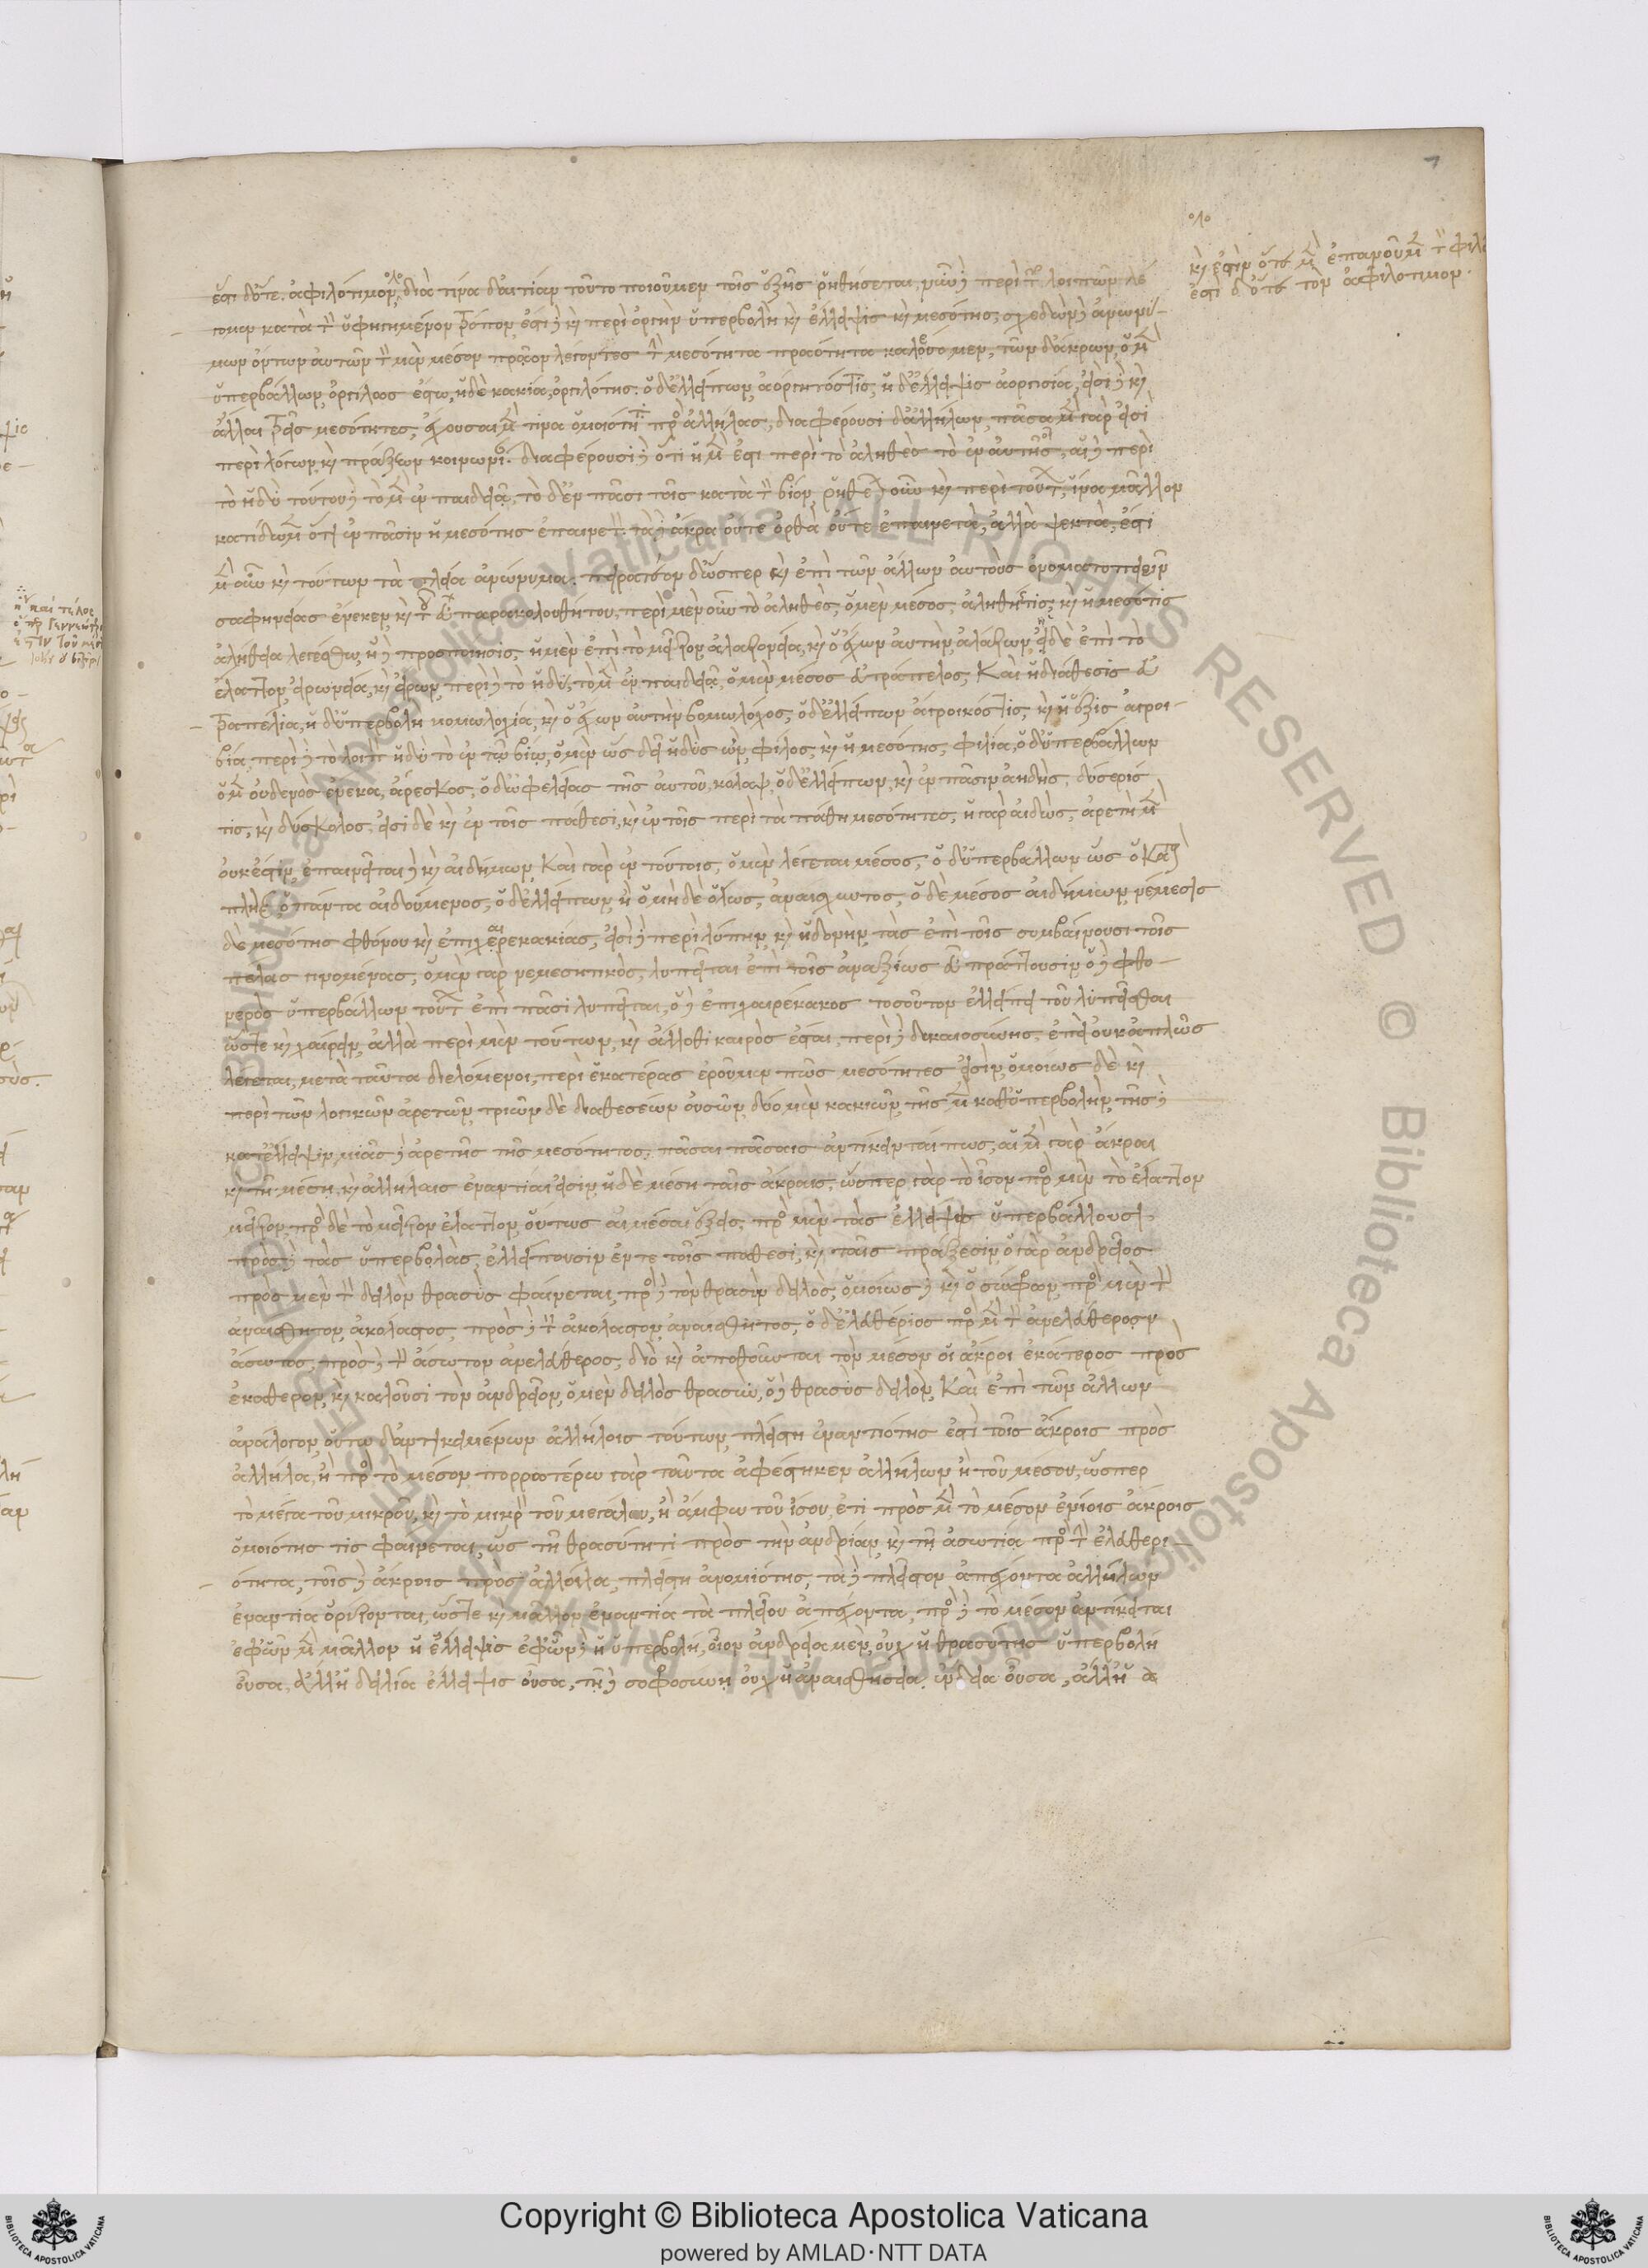 ἔστι δ ὅτε ἀφιλότιμον, διὰ τίνα δ αἰτίαν τοῦτο ποιοῦμεν τοῖς ἑξῆς ῥηθήσεται, νῦν δὲ περὶ τῶν λοιπῶν λέ
γωμεν κατὰ τὸν ὑφηγημένον τρόπον, ἔστι δὲ καὶ περὶ ὀργὴν ὑπερβολὴ καὶ ἔλλειψις καὶ μεσότης, σχεδὸν δὲ ἀνωνύ
μων ὄντων αὐτῶν τὸν μὲν μέσον πρᾶον λέγοντες τὴν μεσότητα πραότητα καλοῦσομεν, τῶν δ ἄκρων, ὁ μὲν
ὑπερβάλλων, ὀργίλος ἔστω, ἡ δὲ κακία, ὀργιλότης. ὁ δ ἐλλείπων, ἀόργητός τις, ἡ δ ἔλλειψις ἀοργησία, εἰσὶ δὲ καὶ
ἄλλαι τρεῖς μεσότητες, ἔχουσαι μὲν τινα ὁμοιότητα πρὸς ἀλλήλας, διαφέρουσι δ ἀλλήλων, πᾶσαι μὲν γάρ εἰσὶ
περὶ λόγων καὶ πράξεων κοινωνίαν. διαφέρουσι δὲ ὅτι ἡ μὲν ἐστι περὶ τὸ ἀληθὲς τὸ ἐν αὐτοῖς, αἱ δὲ περὶ
τὸ ἡδὺ τούτου δὲ τὸ μὲν ἐν παιδιᾷ, τὸ δ ἐν πᾶσι τοῖς κατὰ τὸν βίον, ῥητέον οὖν καὶ περὶ τούτων, ἵνα μᾶλλον
κατίδωμεν ὅτι ἐν πᾶσιν ἡ μεσότης ἐπαινετὸν. τὰ δὲ ἄκρα οὔτε ὀρθὰ οὔτε ἐπαινετὰ, ἀλλὰ ψεκτὰ, ἐστὶ
μὲν οὖν καὶ τούτων τὰ πλείω ἀνώνυμα. πειρατέον δ ὥσπερ καὶ ἐπὶ τῶν ἄλλων αὐτοὺς ὀνοματοποιεῖν
σαφηνείας ἕνεκεν, καὶ τοῦ εὐπαρακολουθήτου, περὶ μὲν οὖν τὸ ἀληθὲς, ὁ μὲν μέσος, ἀληθής τις, καὶ ἡ μεσότης
ἀλήθεια λεγέσθω, ἡ δὲ προσποίησις, ἡ μὲν ἐπὶ τὸ μεῖζον, ἀλαζονεία, καὶ ὁ ἔχων αὐτὴν, ἀλαζών, ἡ δὲ ἐπὶ τὸ
ἔλαττον, εἰρωνεία, καὶ εἴρων, περὶ δὲ τὸ ἡδὺ, τὸ μὲν ἐν παιδιᾷ, ὁ μὲν μέσος εὐτράπελος, καὶ ἡ διάθεσις εὐ
τραπελία, ἡ δ ὑπερβολὴ βομωλοχία, καὶ ὁ ἔχων αὐτὴν βομωλόχος, ὁ δ ἐλλείπων ἄγροικός τις, καὶ ἡ ἕξις ἀγροι
κία, περὶ δὲ τὸ λοιπὸν ἡδὺ τὸ ἐν τῷ βίῳ, ὁ μὲν ὡς δεῖ ἡδὺς ὢν, φίλος, καὶ ἡ μεσότης, φιλία, ὁ δ ὑπερβάλλων
εἰ μὲν οὐδενὸς ἕνεκα, ἄρεσκος, ὁ δ ὠφελείας τῆς αὐτοῦ, κόλαξ, ὁ δ ἐλλείπων, καὶ ἐν πᾶσιν ἀηδὴς, δύσερίς
τις, καὶ δύσκολος, εἰσὶ δὲ καὶ ἐν τοῖς πάθεσι, καὶ ἐν τοῖς περὶ τὰ πάθη μεσότητες, ἡ γὰρ αἰδὼς, ἀρετὴ μὲν
οὐκ ἐστὶν, ἐπαινεῖται δὲ καὶ αἰδήμων, καὶ γὰρ ἐν τούτοις, ὁ μὲν λέγεται μέσος, ὁ δ ὑπερβάλλων ὡς ὁ κατα
πλὴξ, ὁ πάντα αἰδούμενος, ὁ δ ἐλλείπων, ἢ ὁ μὴ δὲ ὅλως, ἀναίσχυντος, ὁ δὲ μέσος αἰδήμων, νέμεσις
δὲ μεσότης φθόνου καὶ ἐπιχαιρεκακίας, εἰσὶ δὲ περὶ λύπην, καὶ ἡδονὴν, τὰς ἐπὶ τοῖς συμβαίνουσι τοῖς
πέλας γινομένας, ὁ μὲν γὰρ νεμεσητικὸς, λυπεῖται ἐπὶ τοῖς ἀναξίως εὖ πράττουσιν, ὁ δὲ φθο
νερὸς ὑπερβάλλων τοῦτον ἐπὶ πᾶσι λυπεῖται, ὁ δὲ ἐπιχαιρέκακος τοσοῦτον ἐλλείπει τοῦ λυπεῖσθαι
ὥστε καὶ χαίρειν, ἀλλὰ περὶ μὲν τούτων, καὶ ἄλλοθι καιρὸς ἔσται, περὶ δὲ δικαιοσύνης, ἐπεὶ οὐχ ἁπλῶς
λέγεται, μετὰ ταῦτα διελόμενοι, περὶ ἑκατέρας ἐροῦμεν πῶς μεσότητες εἰσὶν, ὁμοίως δὲ καὶ
περὶ τῶν λογικῶν ἀρετῶν, τριῶν δὲ διαθέσεων οὐσῶν, δύο μὲν κακιῶν, τῆς μὲν καθ ὑπερβολὴν, τῆς δὲ
κατ ἔλλειψιν, μιᾶς δὲ ἀρετῆς τῆς μεσότητος, πᾶσαι πάσαις ἀντίκεινταί πως, αἱ μὲν γὰρ ἄκραι
καὶ τῇ μέσῃ, καὶ ἀλλήλαις ἐναντίαι εἰσὶν, ἡ δὲ μέση ταῖς ἄκραις, ὥσπερ γὰρ τὸ ἴσον πρὸς μὲν τὸ ἔλαττον
μεῖζον, πρὸς δὲ τὸ μεῖζον ἔλαττον, οὕτως αἱ μέσαι ἕξεις, πρὸς μὲν τὰς ἐλλείψεις ὑπερβάλλουσι
πρὸς δὲ τὰς ὑπερβολὰς, ἐλλείπουσιν ἔν τε τοῖς πάθεσι, καὶ ταῖς πράξεσιν, ὁ γὰρ ἀνδρεῖος
πρὸς μὲν τὸν δειλὸν θρασὺς φαίνεται, πρὸς δὲ τὸν θρασὺν δειλός, ὁμοίως δὲ καὶ ὁ σώφρων, πρὸς μὲν τὸν
ἀναίσθητον, ἀκόλαστος, πρὸς δὲ τὸν ἀκόλαστον, ἀναίσθητος, ὁ δ ἐλευθέριος πρὸς μὲν τὸν ἀνελεύθερον
ἄσωτος, πρὸς δὲ τὸν ἄσωτον ἀνελεύθερος, διὸ καὶ ἀπωθοῦνται τὸν μέσον οἱ ἄκροι ἑκάτερος πρὸς
ἑκάτερον, καὶ καλοῦσι τὸν ἀνδρεῖον, ὁ μὲν δειλὸς θρασὺν, ὁ δὲ θρασὺς δειλὸν, καὶ ἐπὶ τῶν ἄλλων
ἀνάλογον, οὕτω δ ἀντικειμένων ἀλλήλοις τούτων, πλείστη ἐναντιότης ἐστὶ τοῖς ἄκροις πρὸς
ἄλληλα, ἢ πρὸς τὸ μέσον, πορρωτέρω γὰρ ταῦτα ἀφέστηκεν ἀλλήλων ἢ τοῦ μέσου, ὥσπερ
τὸ μέγα τοῦ μικροῦ, καὶ τὸ μικρὸν τοῦ μεγάλου, ἢ ἄμφω τοῦ ἴσου, ἔτι πρὸς μὲν τὸ μέσον ἐνίοις ἄκροις
ὁμοιότης τις φαίνεται, ὡς τῇ θρασύτητι πρὸς τὴν ἀνδρίαν, καὶ τῇ ἀσωτίᾳ πρὸς τὴν ἐλευθερι
ότητα, τοῖς δὲ ἄκροις πρὸς ἄλληλα, πλείστη ἀνομοιότης, τὰ δὲ πλεῖστον ἀπέχοντα ἀλλήλων
ἐναντία ὁρίζονται, ὥστε καὶ μᾶλλον ἐναντία τὰ πλεῖον ἀπέχοντα, πρὸς δὲ τὸ μέσον ἀντίκειται
ἐφ ὧν μὲν μᾶλλον ἡ ἔλλειψις ἐφ ὧν δὲ ἡ ὑπερβολή, οἷον ἀνδρείᾳ μὲν, οὐχ ἡ θρασύτης ὑπερβολὴ
οὖσα, ἀλλ ἡ δειλία ἔλλειψις οὖσα, τῇ δὲ σωφροσύνῃ οὐχ ἡ ἀναισθησία ἔνδεια οὖσα, ἀλλ ἡ ἀ
καὶ ἔστιν ὅτε μὲν ἐπαινοῦμεν τὸν φιλό
ἐστὶ δ ὅτε τὸν ἀφιλότιμον.
Copyright © Biblioteca Apostolica Vaticana
powered by AMLAD·NTT DATA